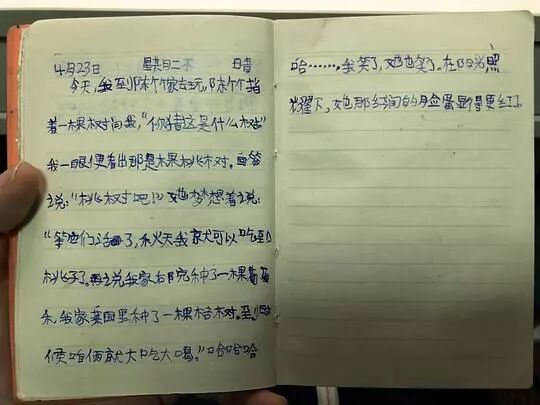 4月23日 星期二 晴
今天,我到陈个家去玩,陈个指
着一棵树问我,“你猜这是什么树?”
我一眼便看出那是棵桃树。回答
说:“桃树吧!”她梦想着说:
“等它们活了,秋天我就可以吃到
桃子了。再说我家后院种了一棵葡萄
,我家菜园里种了一棵桔树。到时
候咱俩就大吃大喝。”哈哈哈
哈……,我笑了,她也笑了。在阳光照
耀下,她那红润的脸蛋显得更红了